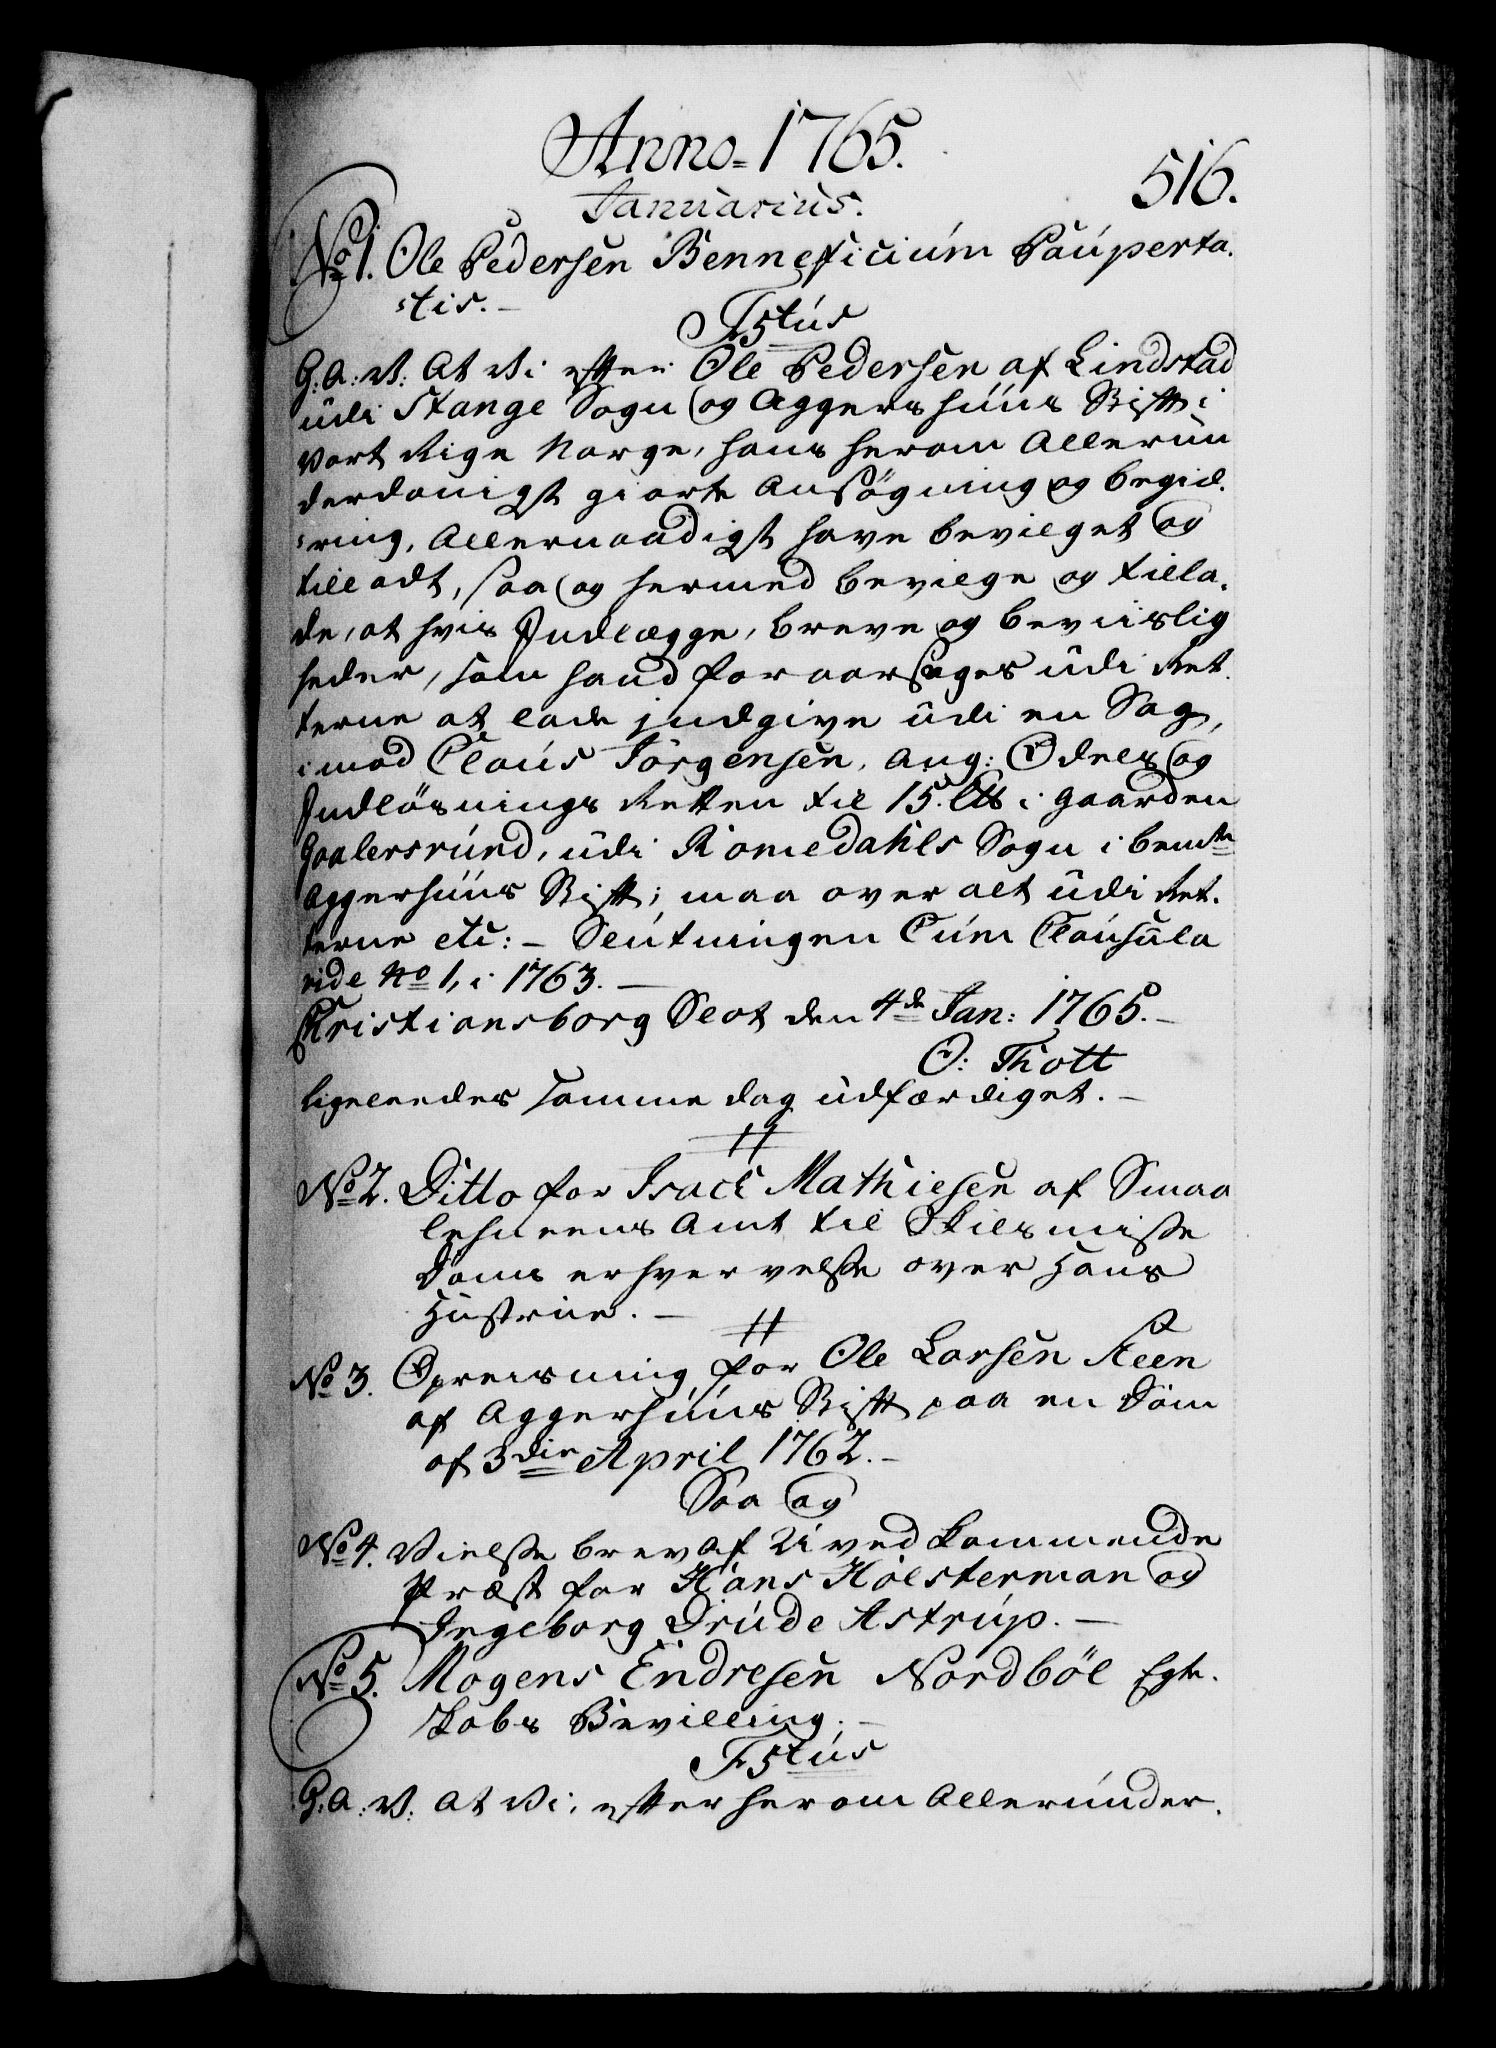 Anno 1765.
516.
Januarius.
No 1. Ole Pedersen Benneficium Pauperta-
tis. -
Fstus
G: A: V: At Vi efter Ole Pedersen af Lindstad
udi Stange Sogn og Aggershuus Stift i
Vort Rige Norge, hans herom Allerun
derdanigst giorte Ansøgning og begiæ-
ring, Allernaadigst have bevilget og
tilladt, saa og hermed bevilge og tilla-
de, at hvis Indlægge, breve og beviislig
heder, som hand foraarsages udi Ret-
terne at lade indgive udi en Sag,
imod Claus Jörgensen, ang: Odels og
Indlösnings Retten til 15. i Gaarden
Gaalersrund, udi Romedahls Sogn i bemte
Aggershuus Stift, maa over alt udi Ret-
terne etc: - Slutningen Cum Clausula
vide No 1, i 1763. -
Christiansborg Slot den 4de Jan: 1765. -
O: Thott
Ligeleedes samme dag udfærdiget. -
No 2. Ditto for Isach Mathiesen af Smaa
lehnens Amt til Skilsmisse
Doms erhvervelse over Hans
Hustrue. -
No 3. Opreisning for Ole Larsen Steen
af Aggershuus Stift paa en Dom
af 3die April 1762. -
Saa og
No 4. Vielse brev af Uvedkommende
Præst for Hans Holsterman og
Ingeborg Drude Astrup. -
No 5. Mogens Endresen Nordböe Egte-
skabs Bevilling. -
Fstus
G: A: V: At Vi, efter herom Allerunder-